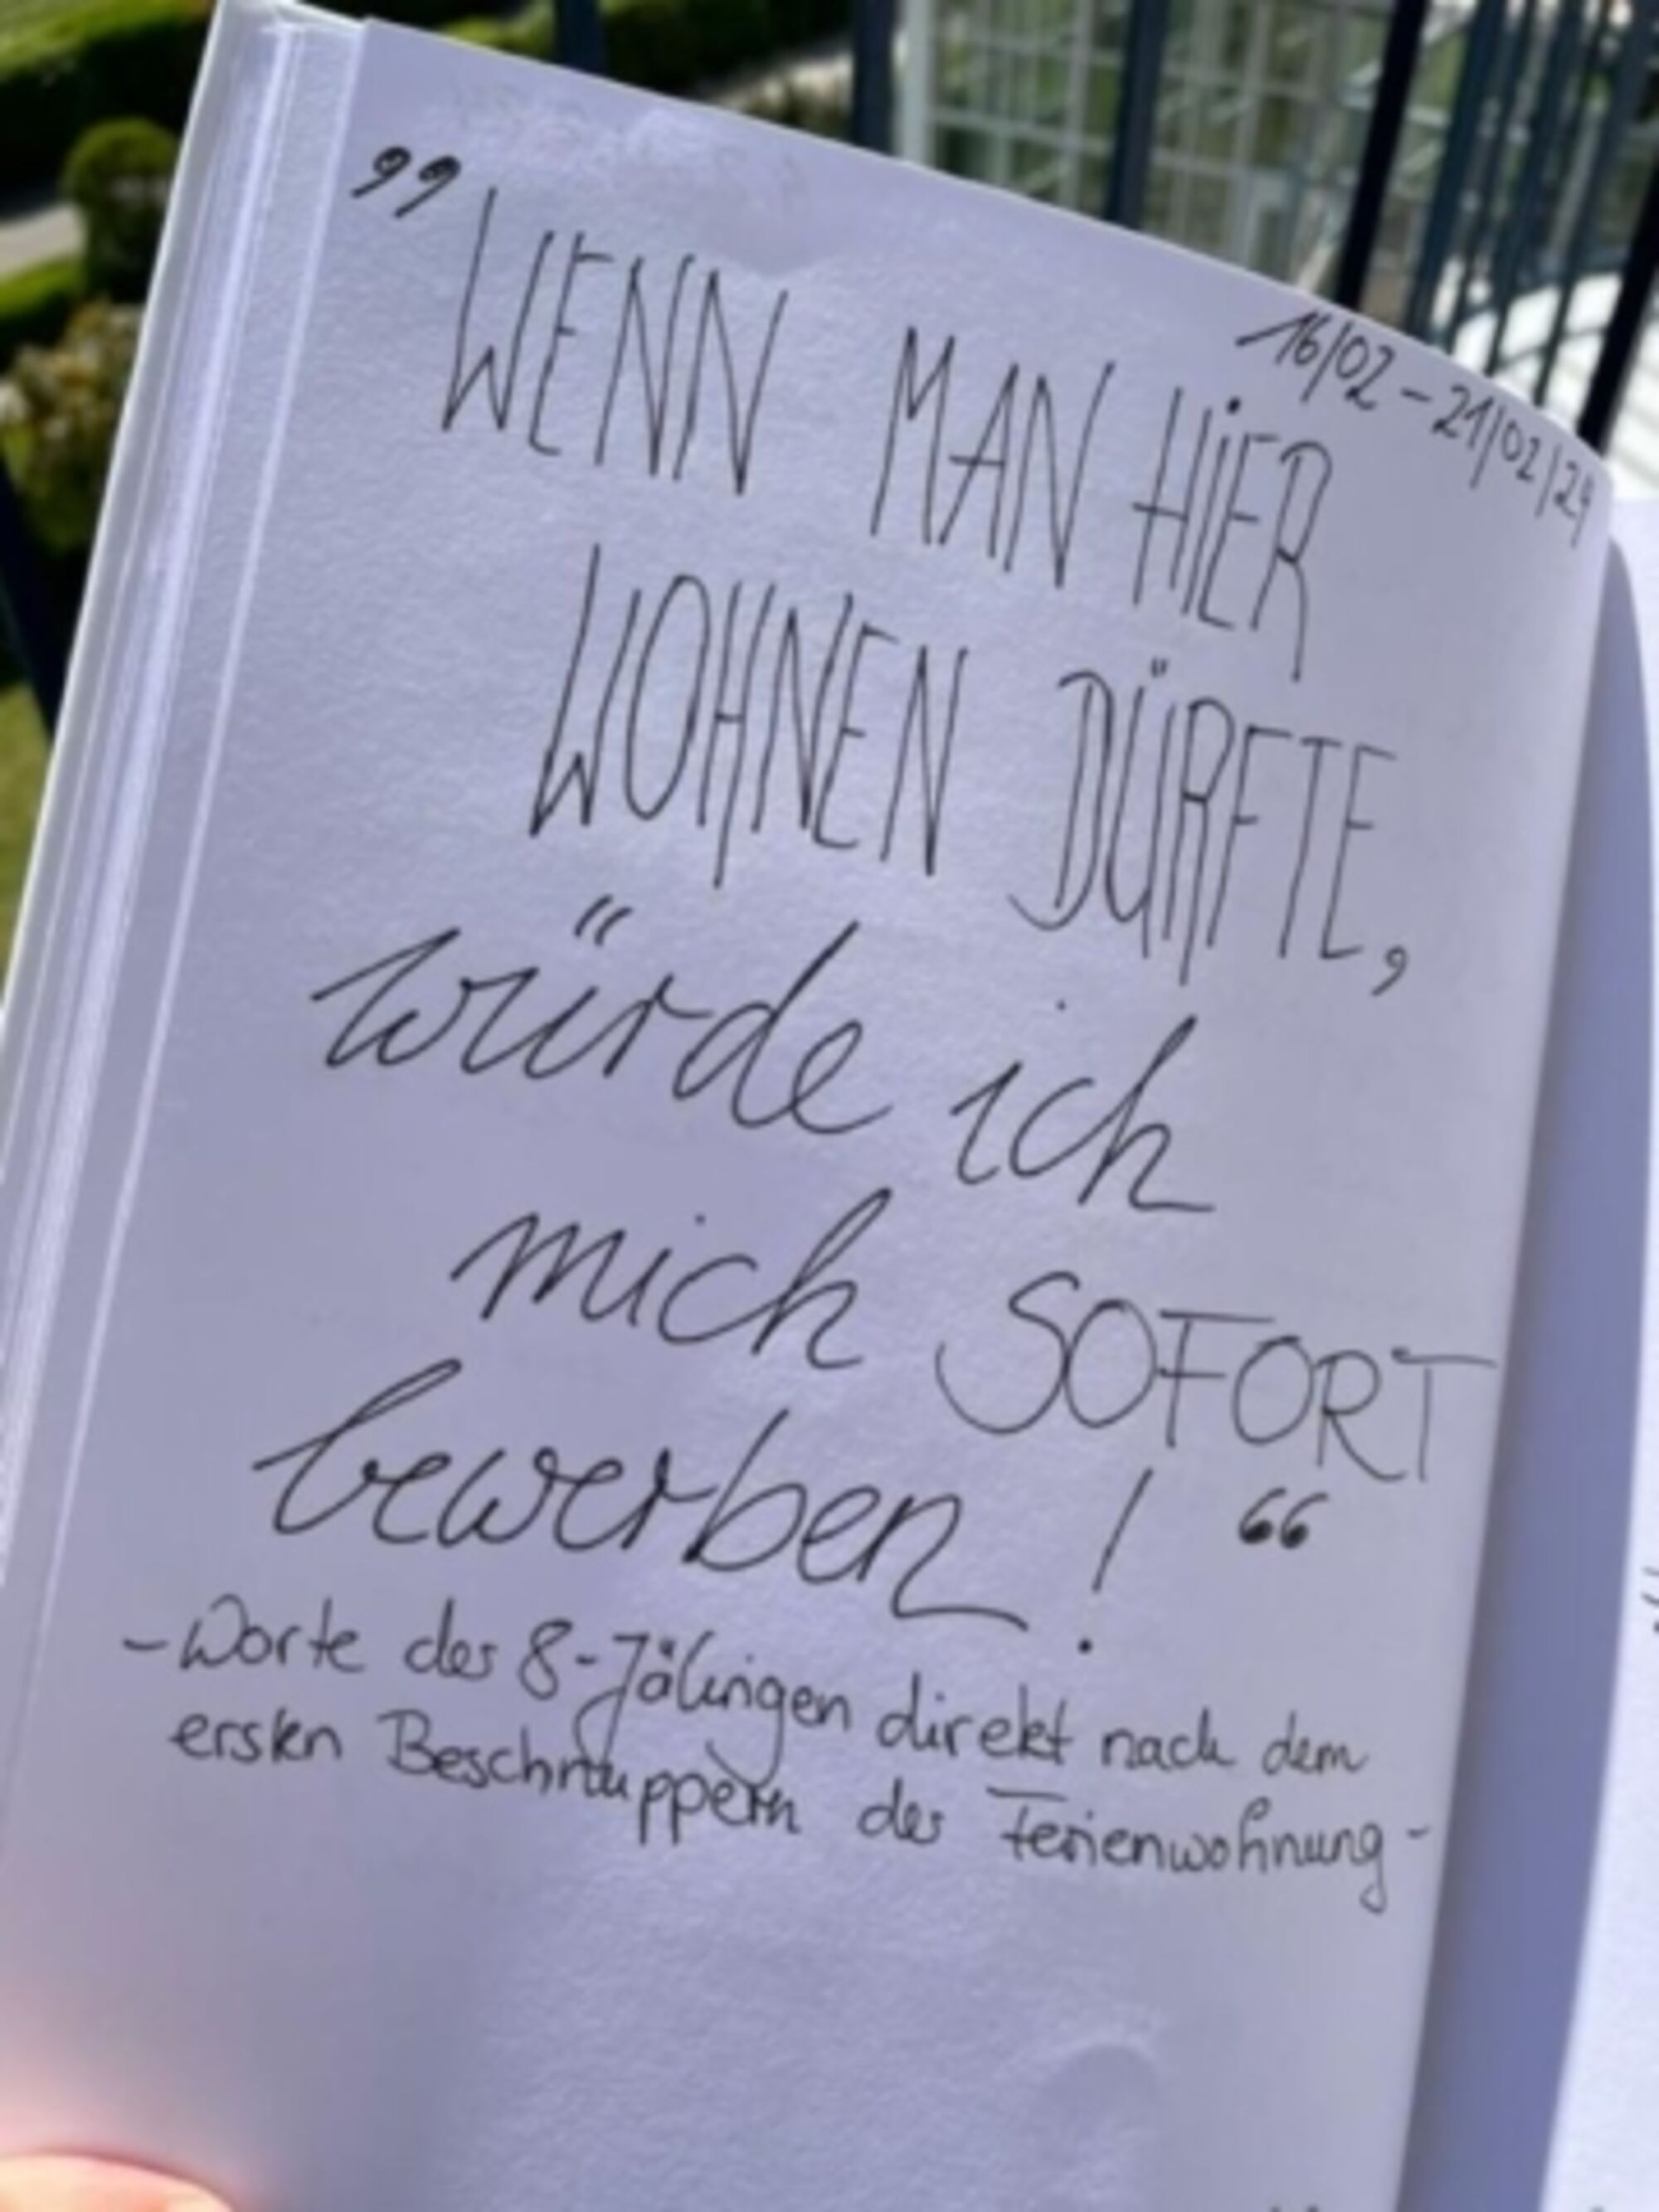 16/02 – 21/02/24
„WENN MAN HIER
WOHNEN DÜRFTE,
würde ich
mich SOFORT
bewerben! “
– Worte des 8-Jährigen direkt nach dem
ersten Beschnuppern der Ferienwohnung –